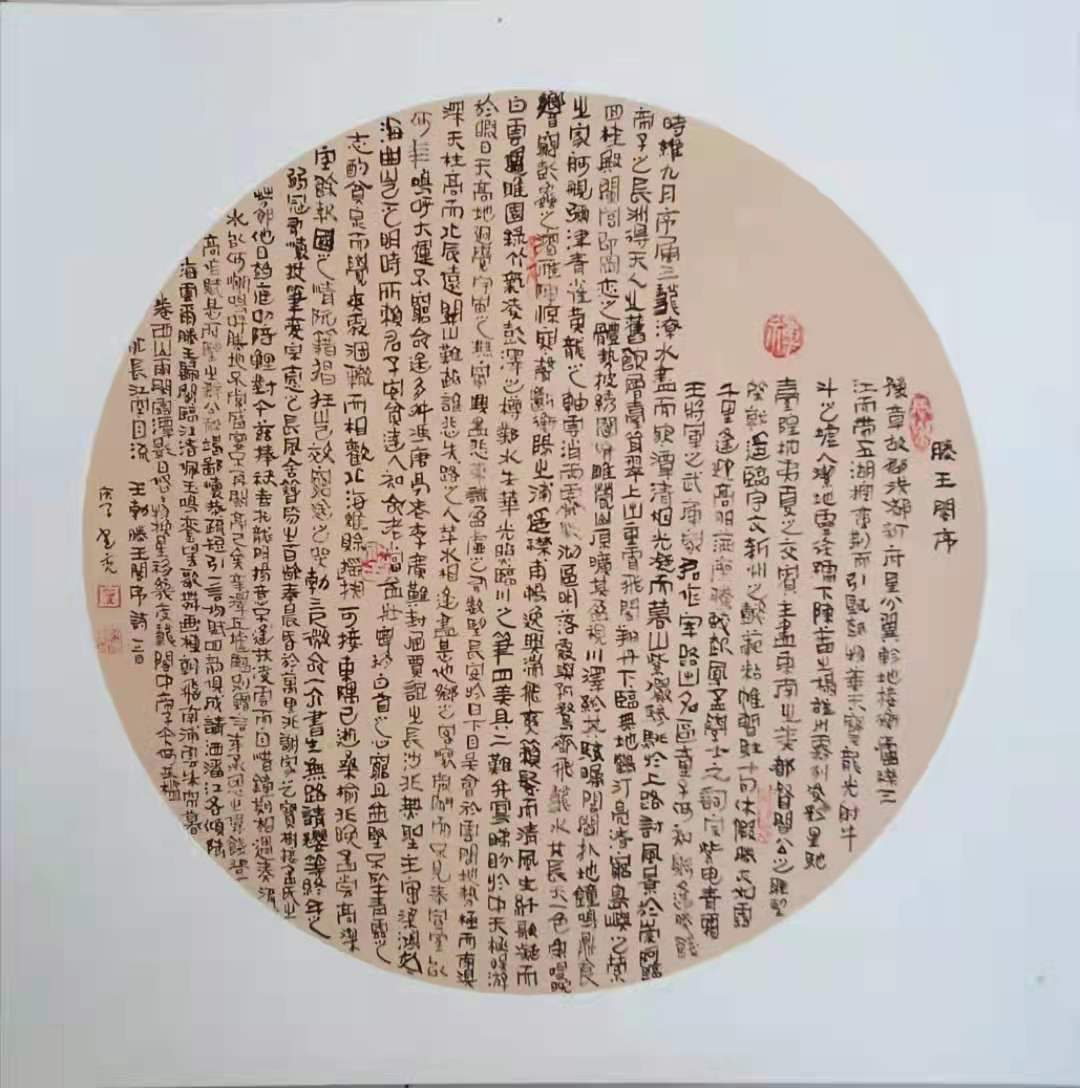 滕王閣序
豫章故郡洪都新府星分翼軫地接衡廬襟三
江而帶五湖控蠻荊而引甌越物華天寶龍光射牛
斗之墟人傑地靈徐孺下陳蕃之榻雄州霧列俊彩星馳
臺隍枕夷夏之交賓主盡東南之美都督閻公之雅望
棨戟遙臨宇文新州之懿範襜帷暫駐十旬休假勝友如雲
千里逢迎高朋滿座騰蛟起鳳孟學士之詞宗紫電青霜
王將軍之武庫家君作宰路出名區童子何知躬逢勝餞
時維九月序屬三秋潦水盡而寒潭清烟光凝而暮山紫儼驂騑於上路訪風景於崇阿臨
帝子之長洲得天人之舊館層臺聳翠上出重霄飛閣翔丹下臨無地鶴汀鳧渚窮島嶼之縈
回桂殿蘭宮即岡巒之體勢披綉闥俯雕甍山原曠其盈視川澤紆其駭矚閭閻撲地鐘鳴鼎食
之家舸艦彌津青雀黃龍之軸雲消雨霽彩徹區明落霞與孤鶩齊飛秋水共長天一色漁唱晚
響窮彭蠡之濱雁陣驚寒聲斷衡陽之浦遙襟甫暢逸興遄飛爽籟發而清風生纖歌凝而
白雲遏睢園綠竹氣凌彭澤之樽鄴水朱華光照臨川之筆四美具二難并窮睇眄於中天極娛游
於暇日天高地迥覺宇宙之無窮興盡悲來識盈虛之有數望長安於日下目吳會於雲間地勢極而南溟
深天柱高而北辰遠關山難越誰悲失路之人萍水相逢盡是他鄉之客懷帝閽而不見奉宣室以
何年嗚呼大運不窮命途多舛馮唐易老李廣難封屈賈誼之長沙非無聖主竄梁鴻於
海曲豈乏明時所賴君子安貧達人知命老當益壯寧移白首之心窮且益堅不墜青雲之
志酌貪泉而覺爽處涸轍而相歡北海雖賒扶搖可接東隅已逝桑榆非晚孟嘗高潔
空餘報國之情阮籍猖狂豈效窮途之哭勃三尺微命一介書生無路請纓等終軍之
弱冠有懷投筆愛宗慤之長風舍簪笏於百齡奉晨昏於萬里非謝家之寶樹接孟氏之
芳鄰他日趨庭叨陪鯉對今茲捧袂喜托龍門楊意不逢撫凌雲而自惜鐘期相遇奏流
水以何慚嗚呼勝地不常盛筵難再蘭亭已矣梓澤丘墟臨別贈言幸承恩於偉餞登
高作賦是所望於群公敢竭鄙懷恭疏短引一言均賦四韻俱成請灑潘江各傾陸
海雲爾滕王高閣臨江渚佩玉鳴鸞罷歌舞畫棟朝飛南浦雲珠簾暮
卷西山雨閒雲潭影日悠悠物換星移幾度秋閣中帝子今何在檻
外長江空自流 王勃滕王閣序詩 三日